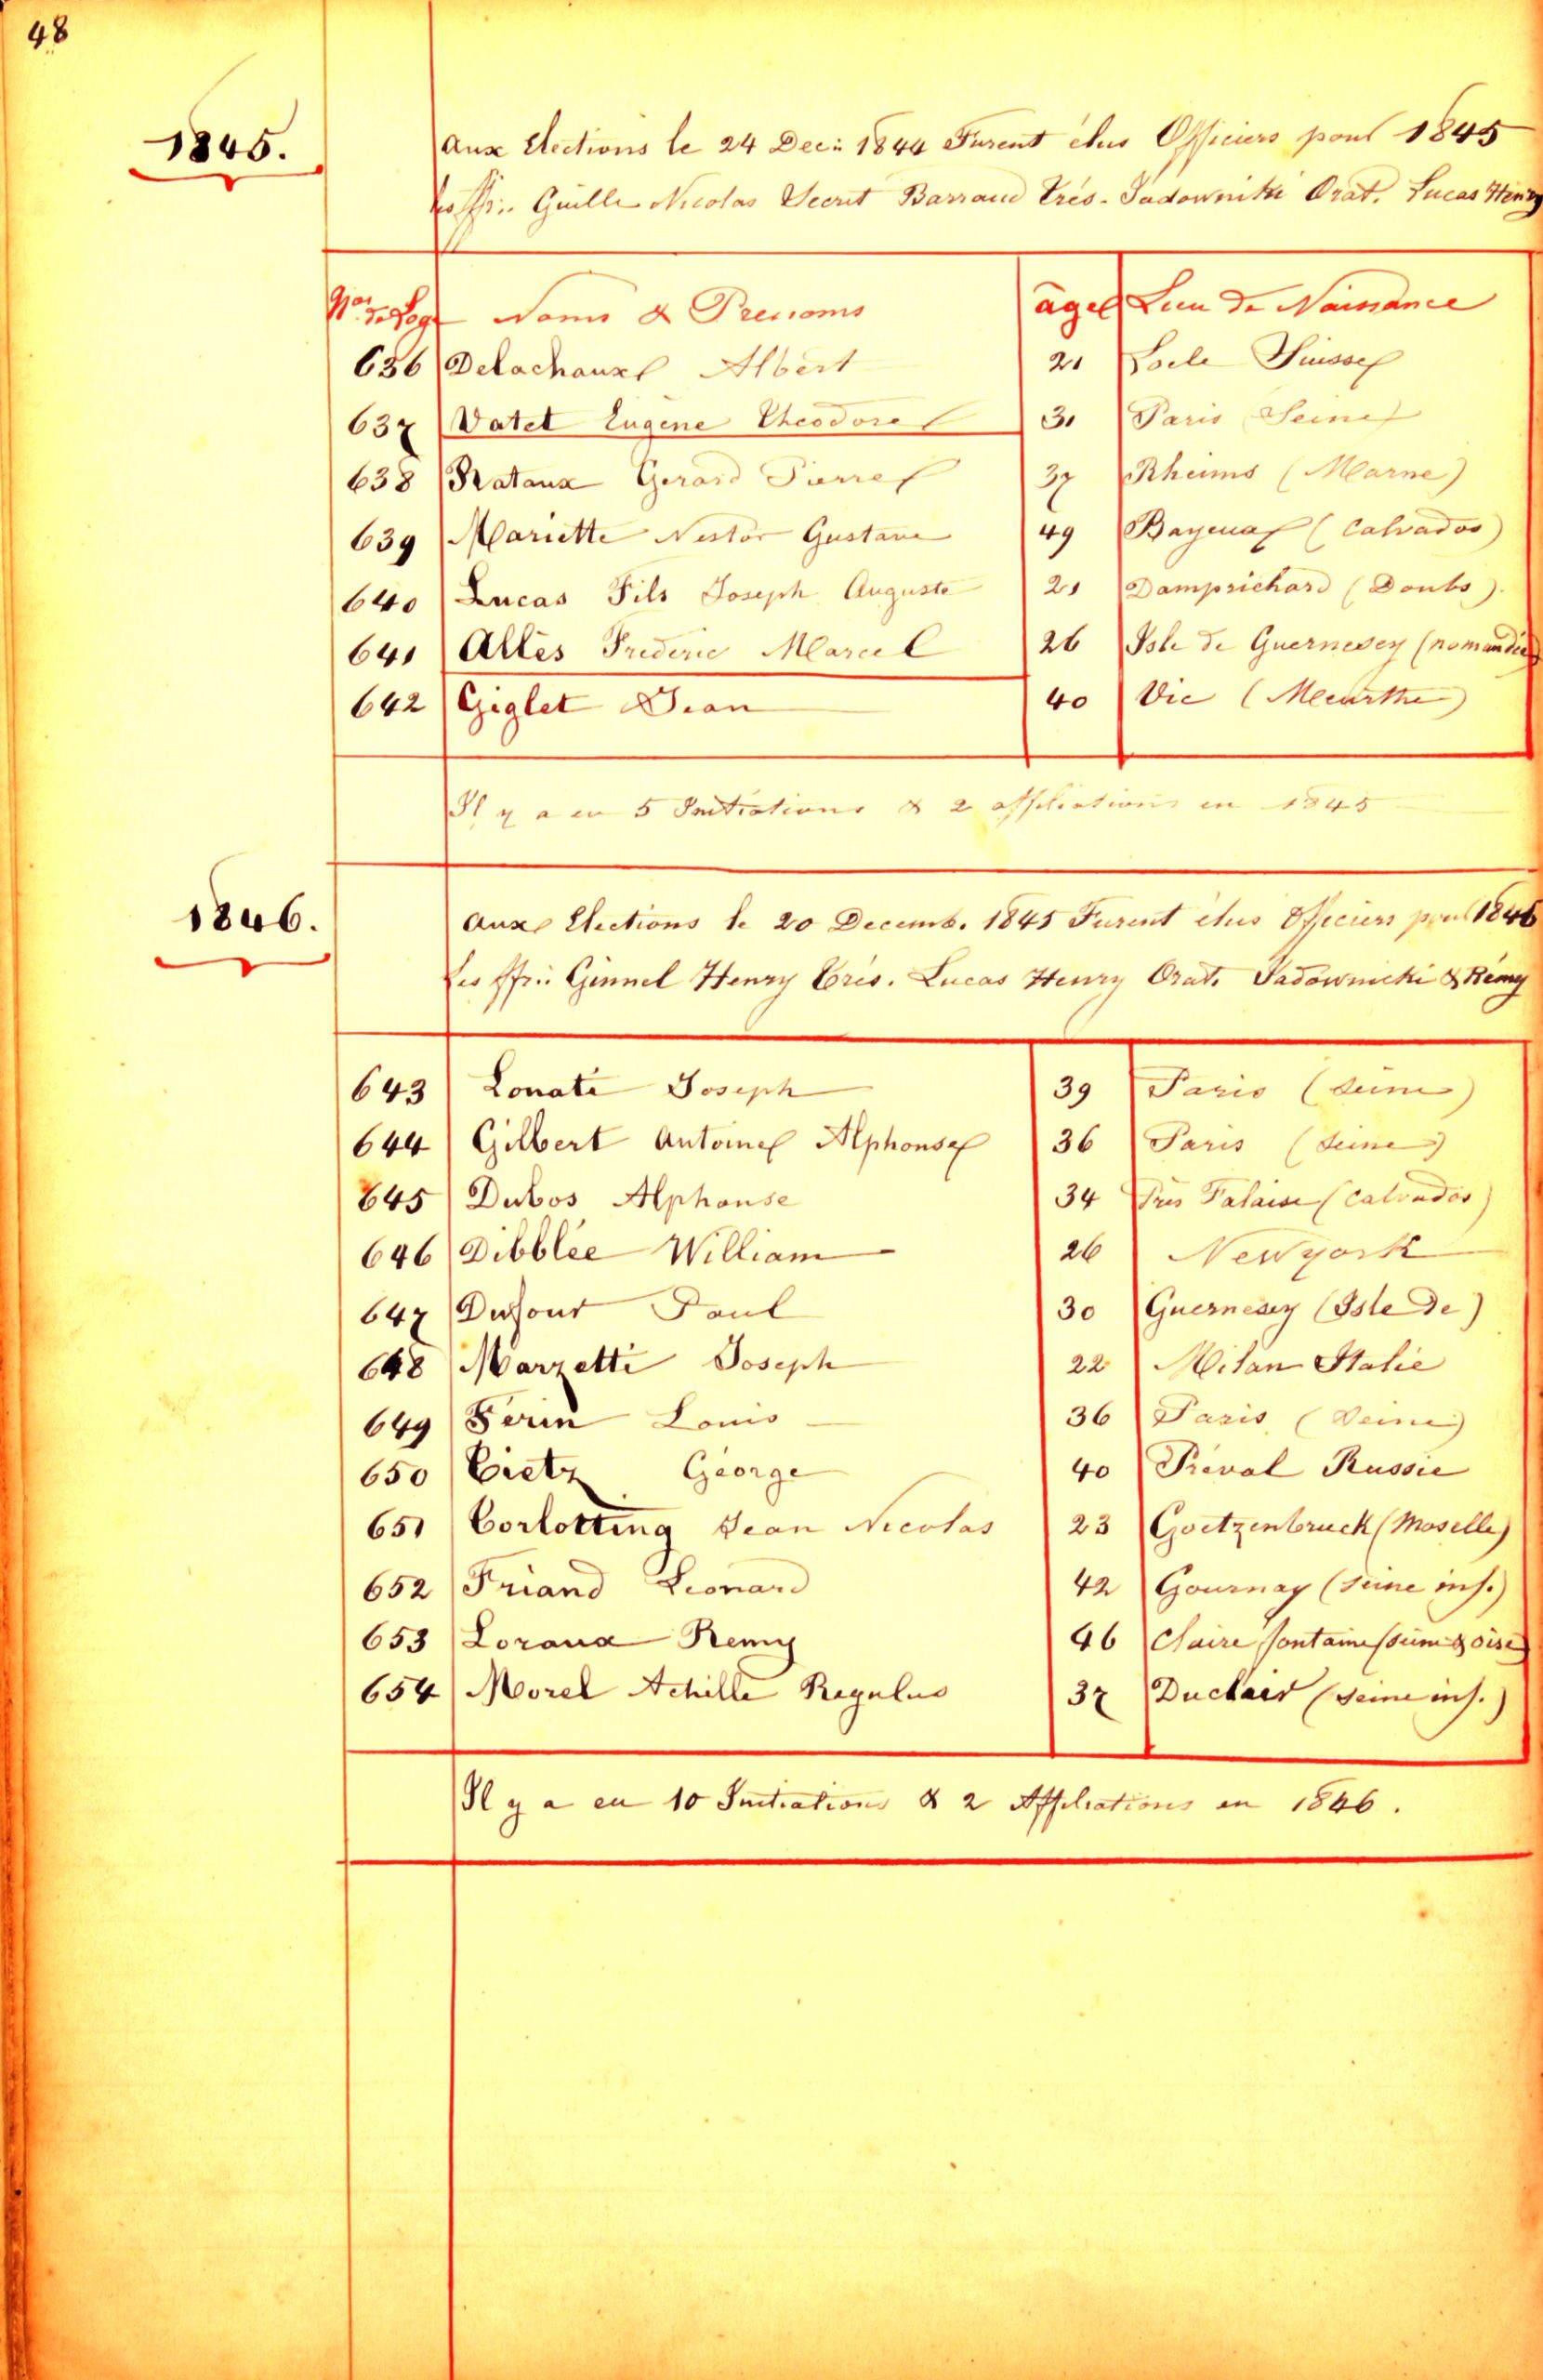 48
1845.
Aux Elections le 24 Dec:: 1844 Furent élus Officiers pour 1845
les ff∴ Guille Nicolas Secret Barraud Trés. Sadownitki Orat. Lucas Henry
Nos. de Log Noms & Prenoms âge Lieu de Naissance
636 Delachaux Albert 21 Locle Suisse
637 Vatet Eugene Theodore 31 Paris Seine
638 Rataux Gerard Pierre 37 Rheims (Marne)
639 Mariette Nestor Gustave 49 Bayeux (Calvados)
640 Lucas Fils Joseph Auguste 21 Damprichard (Doubs).
641 Allès Frederic Marcel 26 Isle de Guernesey (nomandie)
642 Giglet Jean 40 Vic (Meurthe)
Il y a eu 5 Initiations & 2 affiliations en 1845
1846.
Aux Elections le 20 Decemb. 1845 Furent élus Officiers pour 1846
Les ffr∴ Ginnel Henry Trés. Lucas Henry Orat. Sadownicki & Rémy
643 Lonati Joseph 39 Paris (Seine)
644 Gilbert Antoine Alphonse 36 Paris (Seine)
645 Dubos Alphonse 34 Près Falaise (Calvados)
646 Dibblée William 26 Newyork
647 Dufour Paul 30 Guernesey (Isle de)
648 Marzetti Joseph 22 Milan Italie
649 Ferin Louis 36 Paris (Seine)
650 Tietz George 40 Préval Russie
651 Torlotting Jean Nicolas 23 Goetzenbruck (Moselle)
652 Friand Leonard 42 Gournay (Seine inf.)
653 Loraux Remy 46 Claire fontaine (Seine & oise)
654 Morel Achille Regulus 37 Duclair (Seine inf.)
Il y a eu 10 Initiations & 2 Affiliations en 1846.